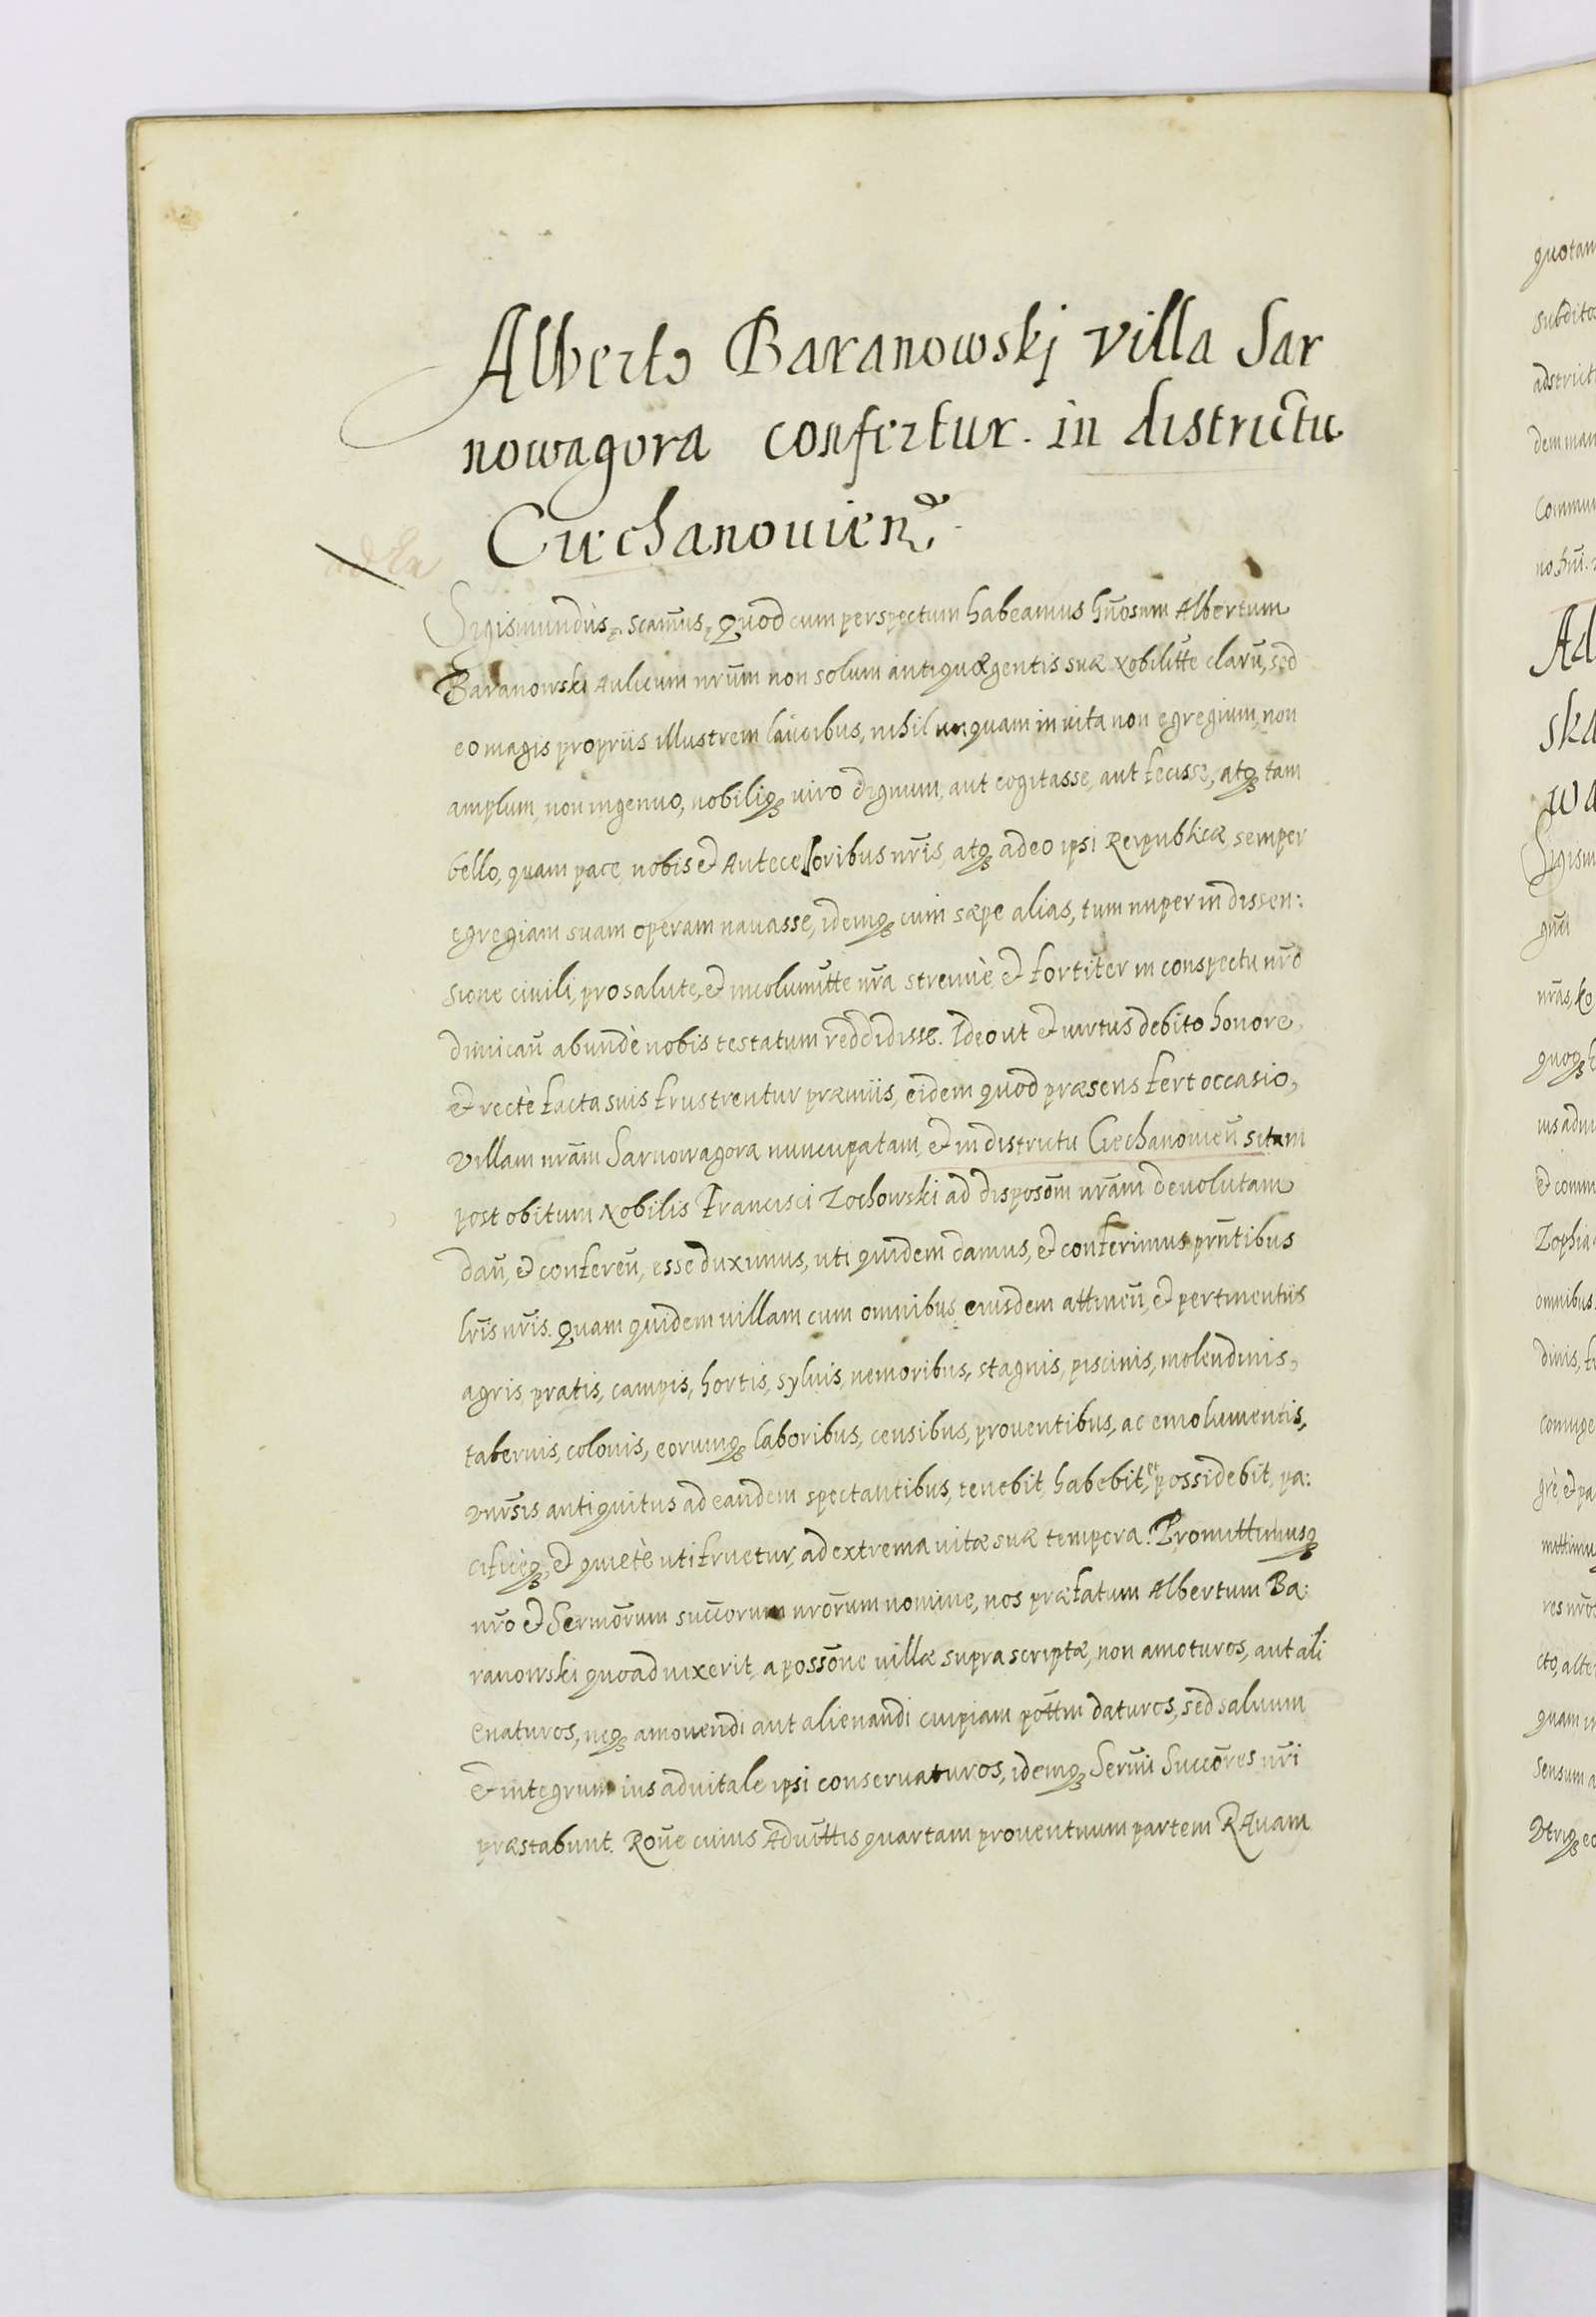 Alberto Baranowski villa Sar
nowagora confertur in districtu
Ciechanouien̄.
Sigismundus, scam̄us, Quod cum perspectum habeamus hn̄osum Albertum
Baranowski Aulicum nr̄um non solum antiquæ gentis suæ Nobilitt̄e clarū, sed
eo magis propriis illustrem laudibus, nihil unquam in uita non egregium, non
amplum, non ingenuo, nobiliq̨ uiro dignum, aut cogitasse, aut fecisse, atq̨ tam
bello, quam pace, nobis et Antecessoribus nr̄is, atq̨ adeo ipsi Reipublicæ semper
egregiam suam operam nauasse, idemq̨ cum sæpe alias, tum nuper in dissen:
sione ciuili, pro salute, et incolumitt̄e nr̄a strenuè et fortiter in conspectu nr̄o
dimican̄ abundè nobis testatum reddidisse. Ideo ut et uirtus debito honore,
et rectè facta suis frustrentur præmiis, eidem quod præsens fert occasio,
Villam nr̄am Sarnowagora nuncupatam, et in districtu Ciechanouien̄ sitam
post obitum Nobilis Francisci Zochowski ad disposōm nr̄am deuolutam
dan̄, et conferen̄, esse duximus, uti quidem damus, et conferimus prn̄tibus
lr̄is nr̄is. Quam quidem uillam cum omnibus eiusdem attinen̄, et pertinentiis
agris, pratis, campis, hortis, syluis, nemoribus, stagnis, piscinis, molendinis,
tabernis, colonis, eorumq̨ laboribus, censibus, prouentibus, ac emolumentis,
Vnir̄sis antiquitus ad eandem spectantibus, tenebit, habebit, et possidebit, pa:
cificèq̨, et quietè uti fruetur, ad extrema uitæ suæ tempora. Promittimusq̨
nr̄o et Sermōrum succōrum nrōrum nomine, nos præfatum Albertum Ba:
ranowski quoad uixerit, a possōne uillæ suprascriptæ, non amoturos, aut ali
enaturos, neq̨ amouendi aut alienandi cuipiam pott̄m daturos, sed saluum
et integrum ius aduitale ipsi conseruaturos, idemq̨ Serm̄i Succōres nr̄i
præstabunt. Rōne cuius Aduitt̄is quartam prouentuum partem RAuam